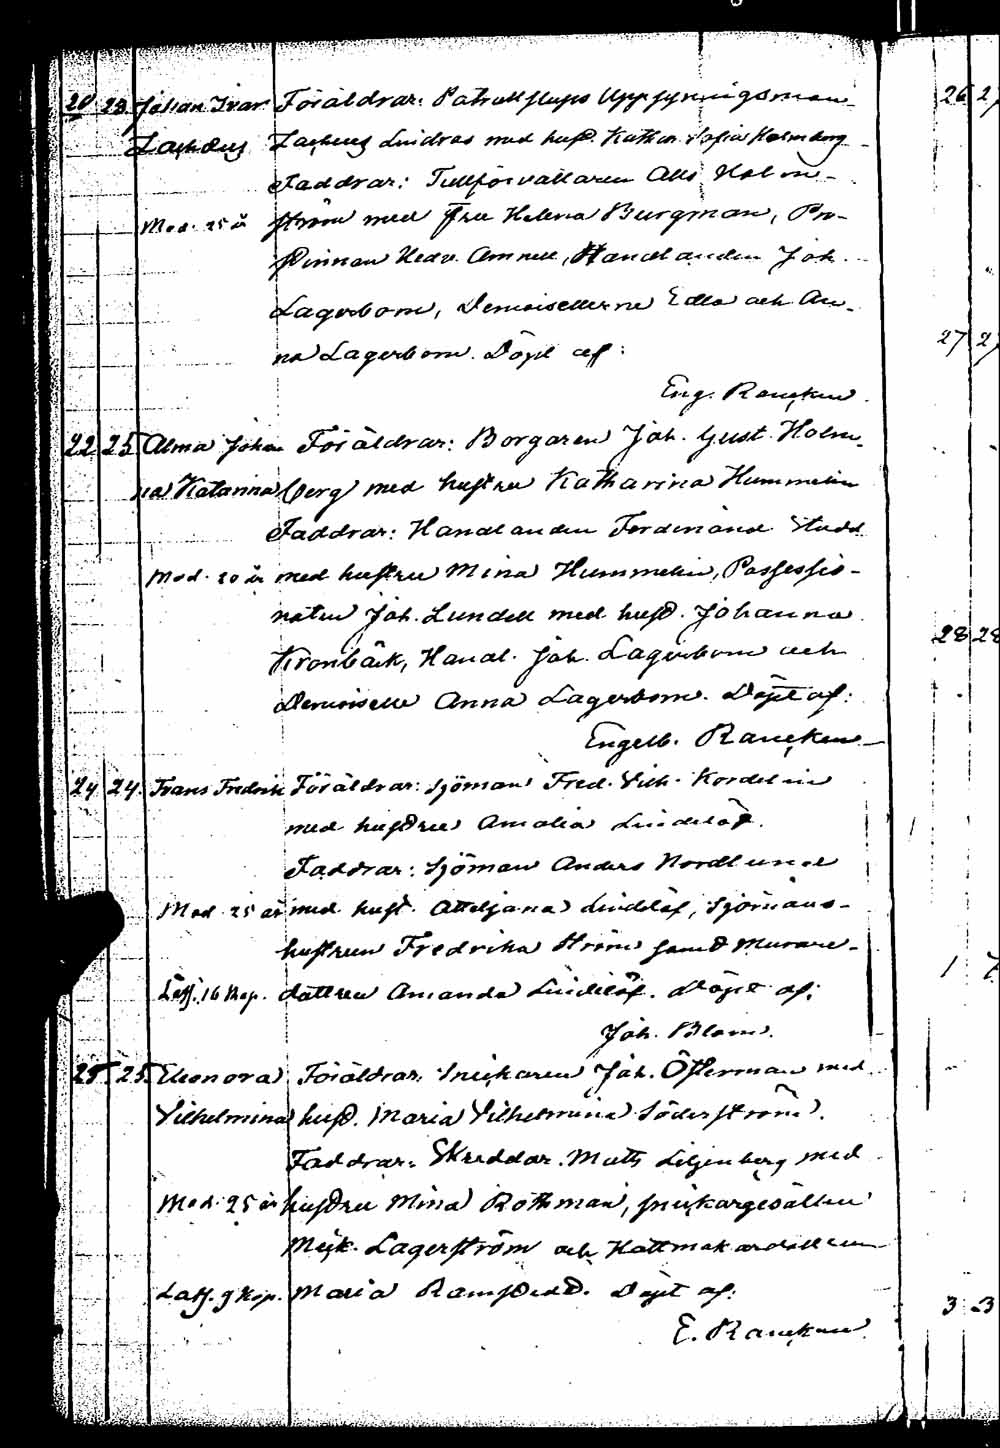 20 23 Johan Ivar Föräldrar: Patrullskeps Uppsyningsman
Zachæus Zacheus Lindros med hust. Kathar. Sofia Holmberg
Faddrar: Tullförvaltaren Holm-
Mod. 25 år ström med Fru Helena Burgman, Pro-
stinnan Hedv. Amnell, Handlanden Joh.
Lagerbom, Demoisellerne Edla och An-
na Lagerbom. Döpt af:
Eng. Rancken
22 25 Alma Johan Föräldrar: Borgaren Joh. Gust. Holm-
na Katarina berg med hustru Katharina Hummelin
Faddrar: Handlanden Ferdinand
Mod. 20 år med hustru Mina Hummelin, Possessio-
naten Joh. Lundell med hust. Johanna
Kronbäck, Handl. Joh. Lagerbom och
Demoiselle Anna Lagerbom. Döpt af:
Engelb. Rancken
24 24. Frans Fredrik Föräldrar: Sjöman Fred. Vilh. Kordelin
med hustru Amalia Lindelöf.
Faddrar: Sjöman Anders Nordlund
Mod. 25 år med hust. Lindelöf, Sjömans-
hustrun Fredrika Ström samt Murare-
16 Kop. dottren Amanda Lindelöf. Döpt af:
Joh. Blom.
25 25. Eleonora Föräldrar: Snickaren Joh. Österman med
Vilhelmina hust. Maria Vilhelmina Söderström.
Faddrar: Skreddar. Matts Liljenberg med
Mod. 25 år hustru Mina Rothman, Snickargesällen
Mick. Lagerström och Hattmakardottren
9 Kop. Maria Ramstedt. Döpt af:
E. Rancken
26 27
27 27
28 28
1
3 3